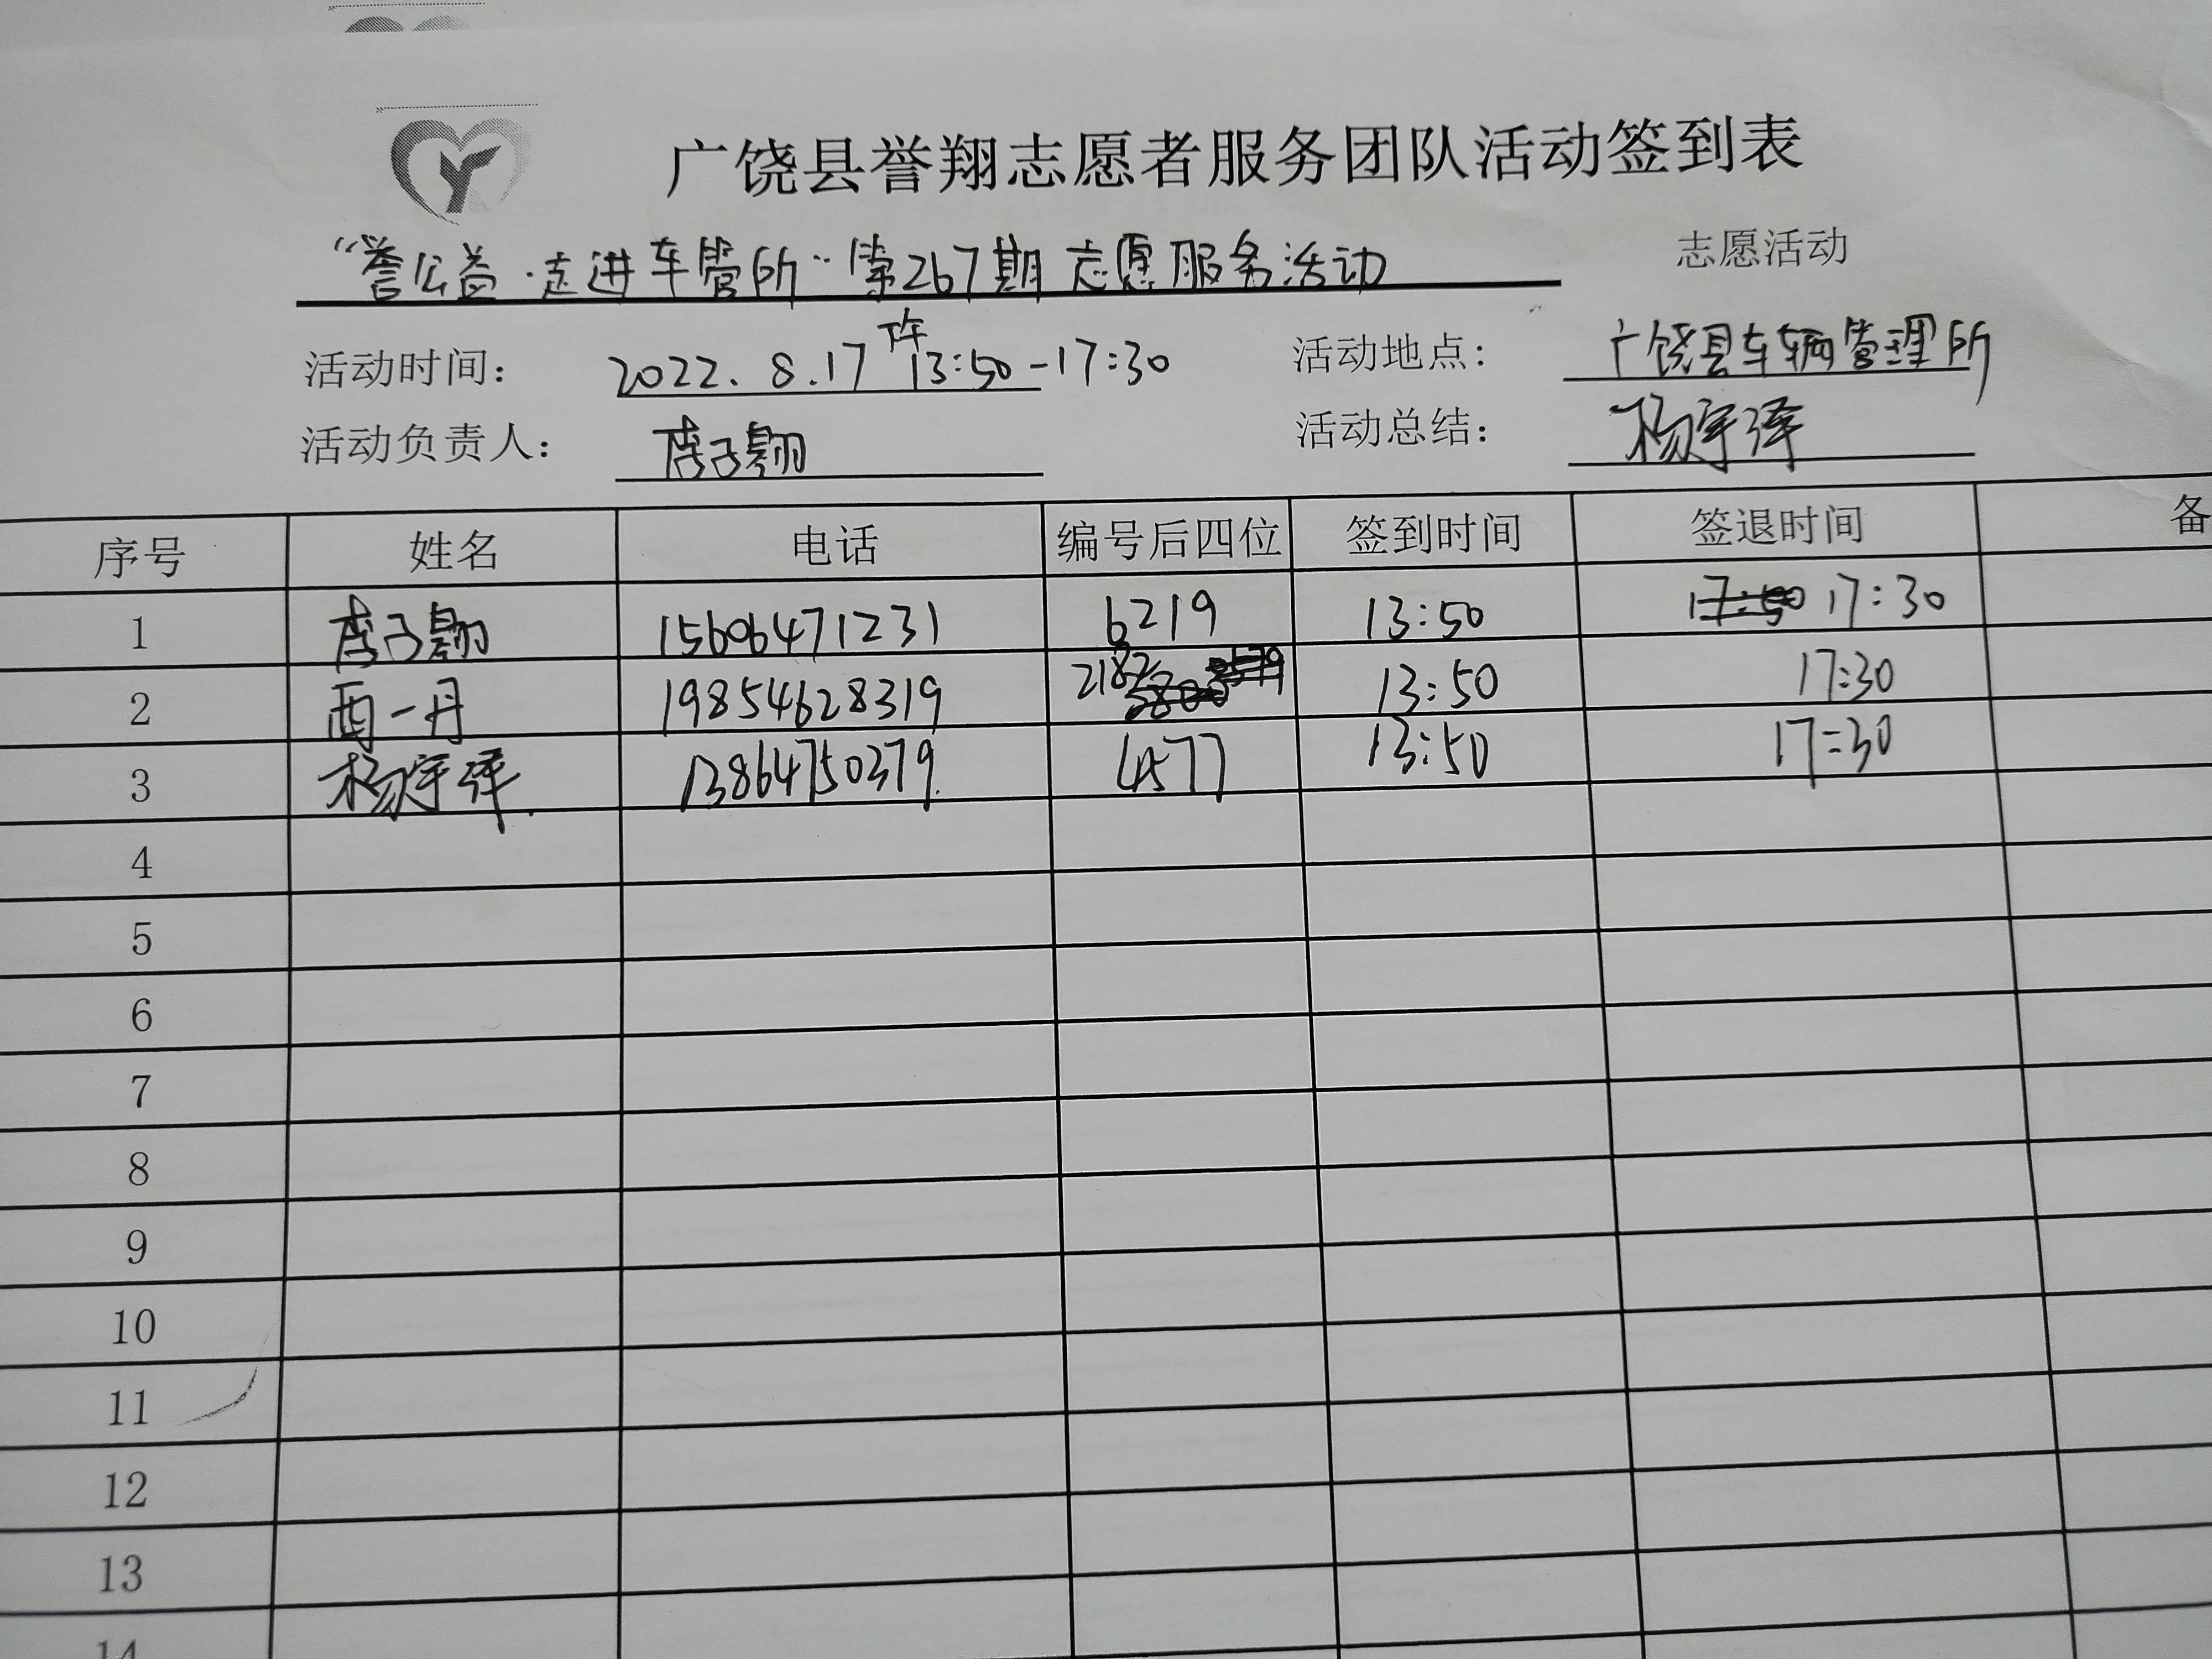 广饶县誉翔志愿者服务团队活动签到表
“誉公益·走进车管所”第267期志愿服务活动 志愿活动
活动时间： 2022.8.17 下午 13:50-17:30 活动地点： 广饶县车辆管理所
活动负责人： 李子翱 活动总结： 杨宇泽
序号 姓名 电话 编号后四位 签到时间 签退时间 备
1 李子翱 15606471231 6219 13:50 17:50 17:30
2 西一丹 19854628319 2182 13:50 17:30
3 杨宇泽 13864750379 4577 13:50 17:30
4
5
6
7
8
9
10
11
12
13
14